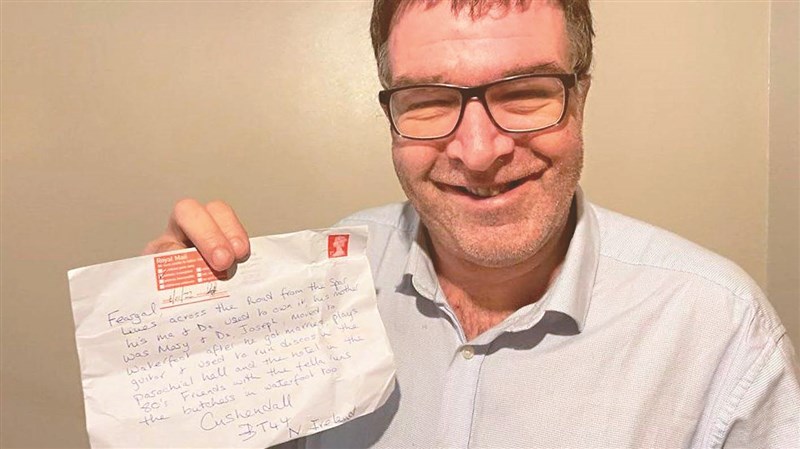 Royal Mail
Feargal
Lives across the Road from the Spar
his ma & Da used to own it his mother
was Mary & Da Joseph, moved to
Waterfoot after he got married plays
guitar & used to run discos in the
parochial hall and the hotel in the
80's Friends with the fella runs
the butchers in waterfoot too
Cushendall
BT44
N Ireland